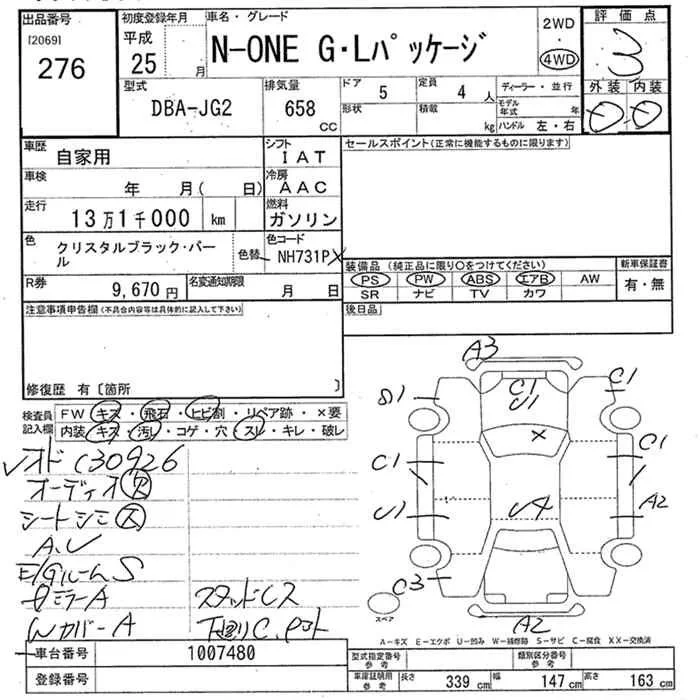 出品番号
[2069]
276
初度登録年月
平成
25 月
車名・グレード
N-ONE G・Lパッケージ
2WD
・
4WD
評価点
3
外装 内装
型式
DBA-JG2
排気量
658
CC
ドア
5
定員
4 人
形状
積載
kg
ディーラー・並行
モデル年式 年
ハンドル 左・右
車歴
自家用
シフト
IAT
車検
年 月( 日)
冷房
AAC
走行
13万1千000 km
燃料
ガソリン
色
クリスタルブラック・パール
色替
色コード
NH731PX
R券
9,670 円
名変通知期限
月 日
セールスポイント(正常に機能するものに限ります)
装備品 (純正品に限り○をつけてください)
PS PW ABS エアB AW
SR ナビ TV カワ
新車保証書
有・無
注意事項申告欄(不具合内容等は具体的に記入して下さい)
後日品
修復歴 有〔箇所 〕
検査員記入欄
FW キズ・飛石・ヒビ割・リペア跡・×要
内装 キズ・汚レ・コゲ・穴・スレ・キレ・破レ
オーディオ ヌ
シートシミ
A.U
E/Gルーム S
ミラーA
Wカバー A
スタッドレス
下廻り C.
A3
C1
U1
C1
C1
C1
×
U1
U4
A2
C3
A2
スペア
A-キズ E-エクボ U-凹み W-補修跡 S-サビ C-腐食 XX-交換済
車台番号
1007480
登録番号
型式指定番号
参考
類別区分番号
参考
車庫証明用
参考
長さ 339 cm 幅 147 cm 高さ 163 cm